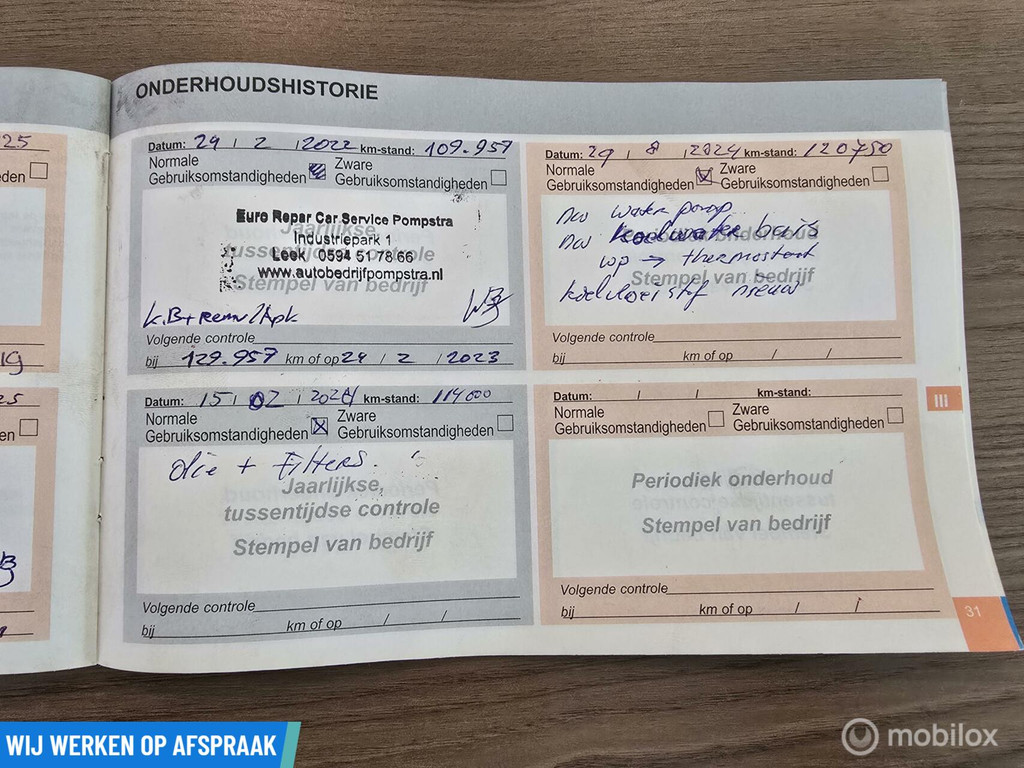 ONDERHOUDSHISTORIE
25
den
ig
25
en
Datum: 24 / 2 / 2022 km-stand: 109.957
Normale Gebruiksomstandigheden
Zware Gebruiksomstandigheden
Euro Repar Car Service Pompstra
Industriepark 1
Leek 0594 51 78 66
www.autobedrijfpompstra.nl
Jaarlijkse,
tussentijdse controle
Stempel van bedrijf
Volgende controle
bij 129.957 km of op 24 / 2 / 2023
Datum: 29 / 8 / 2024 km-stand: 120750
Normale Gebruiksomstandigheden
Zware Gebruiksomstandigheden
nw waterpomp
nw koelwater buis
wp → thermostaat
koelvloeistof nieuw
Periodiek onderhoud
Stempel van bedrijf
Volgende controle
bij km of op / /
Datum: 15 / 02 / 2024 km-stand: 114000
Normale Gebruiksomstandigheden
Zware Gebruiksomstandigheden
olie + Filters.
Jaarlijkse,
tussentijdse controle
Stempel van bedrijf
Volgende controle
bij km of op / /
Datum: / / km-stand:
Normale Gebruiksomstandigheden
Zware Gebruiksomstandigheden
Periodiek onderhoud
Stempel van bedrijf
Volgende controle
bij km of op / /
III
31
WIJ WERKEN OP AFSPRAAK
mobilox